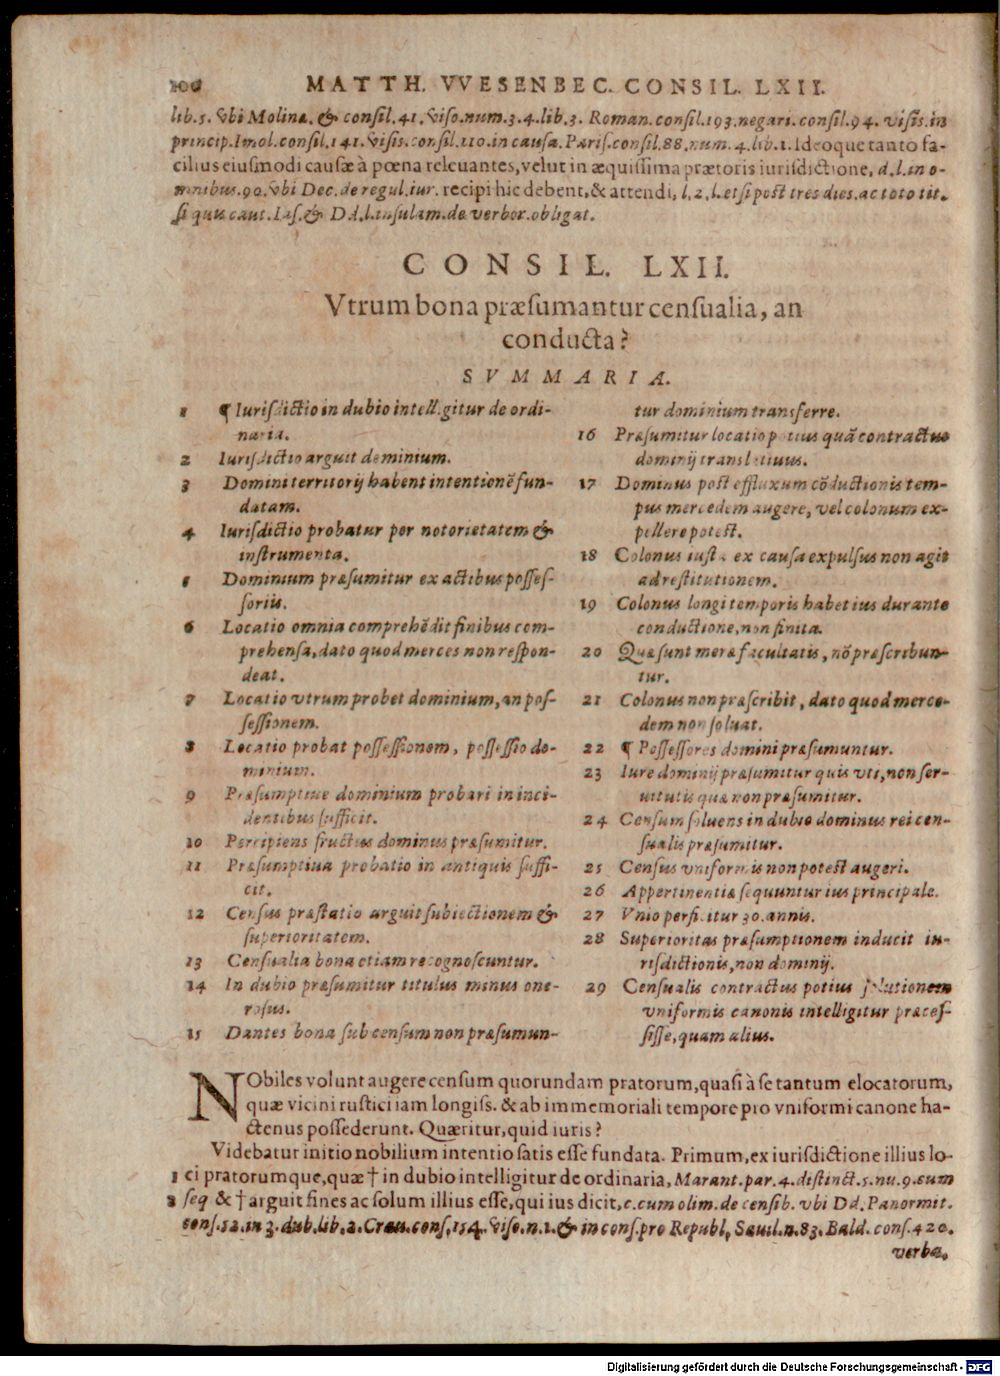 MATTH. VVESENBEC. CONSIL. LXII.
lib.5. vbi Molina. & consil.41. viso.num.3.4.lib.3. Roman.consil.193.negari.consil.94. visis.in
princip.Imol.consil.141.visis.consil.110.in causa.Paris.consil.88.num.4.lib.1. Ideoque tanto fa-
cilius eiusmodi causæ à pœna releuantes, velut in æquissima prætoris iurisdictione, d.l.in o-
mnibus.90.vbi Dec.de regul.iur. recipi hic debent, & attendi, l.2.l.et si post tres dies.ac toto tit.
si quis caut.Ias.& Dd.l.insulam.de verbor.obligat.
CONSIL. LXII.
Vtrum bona præsumantur censualia, an
conducta?
SVMMARIA.
1 ¶ Iurisdictio in dubio intelligitur de ordi-
naria.
2 Iurisdictio arguit dominium.
3 Domini territorij habent intentionē fun-
datam.
4 Iurisdictio probatur per notorietatem &
instrumenta.
5 Dominium præsumitur ex actibus posses-
soriis.
6 Locatio omnia comprehēdit finibus com-
prehensa, dato quod merces non respon-
deat.
7 Locatio vtrum probet dominium, an pos-
sessionem.
8 Locatio probat possessionem, possessio do-
minium.
9 Præsumptiue dominium probari in inci-
dentibus sufficit.
10 Percipiens fructus dominus præsumitur.
11 Præsumptiua probatio in antiquis suffi-
cit.
12 Census præstatio arguit subiectionem &
superioritatem.
13 Censualia bona etiam recognoscuntur.
14 In dubio præsumitur titulus minus one-
rosus.
15 Dantes bona sub censum non præsumun-
tur dominium transferre.
16 Præsumitur locatio potius quā contractus
dominij translatiuus.
17 Dominus post effluxum cōductionis tem-
pus mercedem augere, vel colonum ex-
pellere potest.
18 Colonus iusta ex causa expulsus non agit
ad restitutionem.
19 Colonus longi temporis habet ius durante
conductione, non finita.
20 Quæ sunt meræ facultatis, nō præscribun-
tur.
21 Colonus non præscribit, dato quod merce-
dem non soluat.
22 ¶ Possessores domini præsumuntur.
23 Iure dominij præsumitur quis vti, non ser-
uitutis quæ non præsumitur.
24 Censum soluens in dubio dominus rei cen-
sualis præsumitur.
25 Census vniformis non potest augeri.
26 Appertinentiæ sequuntur ius principale.
27 Vnio perficitur 30.annis.
28 Superioritas præsumptionem inducit iu-
risdictionis, non dominij.
29 Censualis contractus potius solutionem
vniformis canonis intelligitur præces-
sisse, quam alius.
NObiles volunt augere censum quorundam pratorum, quasi à se tantum elocatorum,
quæ vicini rustici iam longiss. & ab immemoriali tempore pro vniformi canone ha-
ctenus possederunt. Quæritur, quid iuris?
Videbatur initio nobilium intentio satis esse fundata. Primum, ex iurisdictione illius lo-
1 ci pratorumque, quæ † in dubio intelligitur de ordinaria, Marant.par.4.distinct.5.nu.9.cum
2 seq & † arguit fines ac solum illius esse, qui ius dicit, c.cum olim.de censib. vbi Dd.Panormit.
cons.52.in 3.dub.lib.2.Crau.cons.154. viso.n.1.& in cons.pro Republ, Sauil.n.83.Bald. cons.420.
verba,
Digitalisierung gefördert durch die Deutsche Forschungsgemeinschaft - DFG